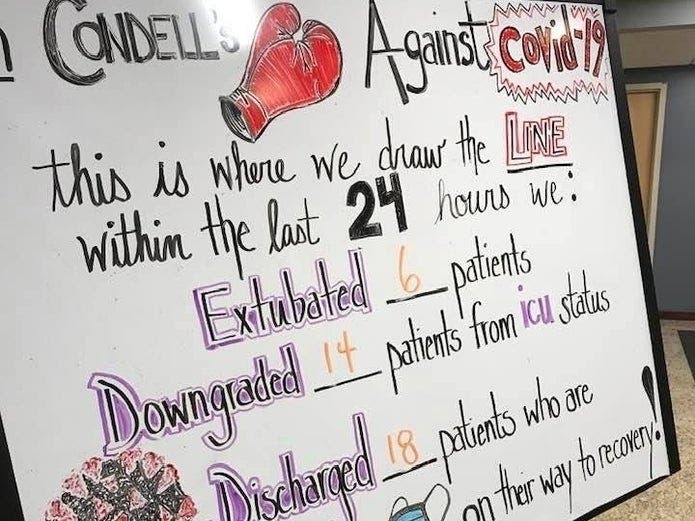 CONDELL'S Against Covid-19
this is where we draw the LINE
within the last 24 hours we:
Extubated 6 patients
Downgraded 14 patients from icu status
Discharged 18 patients who are
on their way to recovery!